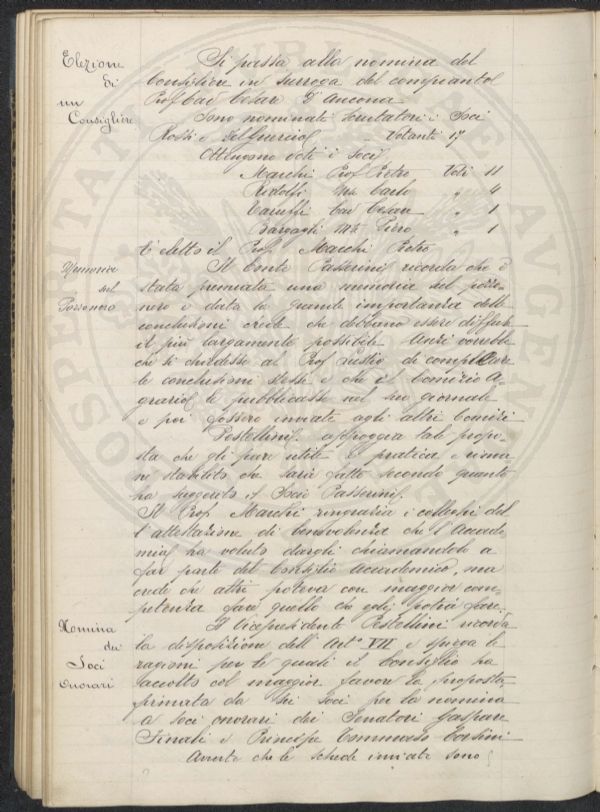 Elezione
di
un
Consigliere
Si passa alla nomina del
Consigliere in surroga del compianto
Prof Cav Cesare D'Ancona
Sono nominati Scrutatori i Soci
Rossi e Votanti 17
Ottengono voti i Soci
Marchi Prof Pietro Voti 11
Ridolfi Mse Carlo " 4
Taruffi Cav Cesare " 1
Bargagli Mse Piero " 1
È eletto il Prof. Marchi Pietro
Memoria
sul
Pozzonero
Il Conte Passerini ricorda che è
stata premiata una memoria sul pozzo
nero e data la grande importanza delle
conclusioni crede che debbano essere diffuse
il più largamente possibile. Anzi vorrebbe
che si chiedesse al Prof di compilare
le conclusioni stesse e che il Comizio A-
grario le pubblicasse nel suo giornale
e poi fossero inviate agli altri Comizi
Pestellini. appoggia tale propo-
sta che gli pare utile e pratica e rima-
ne stabilito che sarà fatto secondo quanto
ha suggerito il Socio Passerini.
Il Prof. Marchi ringrazia i colleghi del
l'attestazione di benevolenza che l'Accade-
mia ha voluto dargli chiamandolo a
far parte del Consiglio accademico, ma
crede che altri poteva con maggior com-
petenza fare quello che egli potrà fare.
Nomina
dei
Soci
Onorari
Il Vicepresidente Pestellini ricorda
la disposizione dell'Art.o VII e spiega le
ragioni per le quali il Consiglio ha
accolto col maggior favore la proposta
firmata da Soci per la nomina
a Soci onorari dei Senatori Gaspare
Finali e Principe Tommaso Corsini
Avverte che le schede inviate sono